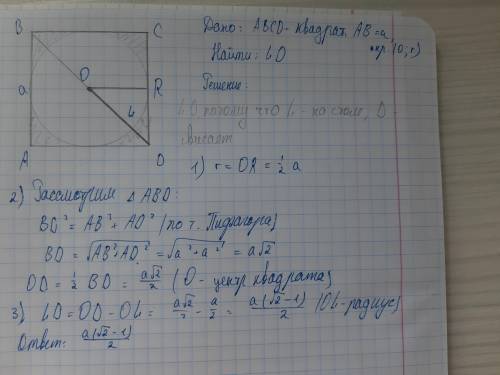 B C
O
a R
L
A D
Дано: ABCD - квадрат, AB = a,
окр. (O; r)
Найти: LD
Решение:
LD потому что L - на столе, D -
свисает
1) r = OR = ½ a
2) Рассмотрим △ ABD:
BD² = AB² + AD² (по т. Пифагора)
BD = √AB² + AD² = √a² + a² = a√2
OD = ½ BD = a√2/2 (O - центр квадрата)
3) LD = OD - OL = a√2/2 - a/2 = a(√2 - 1)/2 (OL - радиус)
Ответ: a(√2 - 1)/2